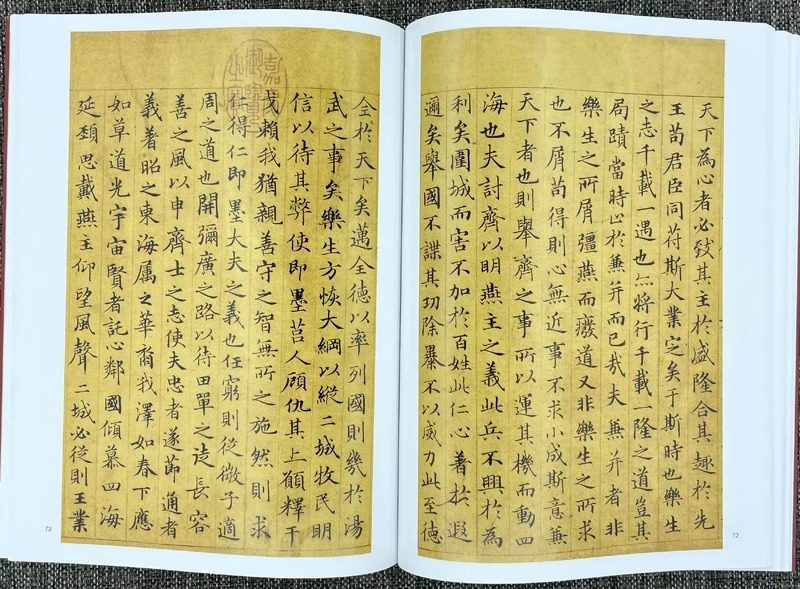 天下為心者必致其主於盛隆合其趣於先
王苟君臣同苻斯大業定矣于斯時也樂生
之志千載一遇也亦將行千載一隆之道豈其
局蹟當時止於兼并而已哉夫兼并者非
樂生之所屑彊燕而廢道又非樂生之所求
也不屑苟得則心無近事不求小成斯意兼
天下者也則舉齊之事所以運其機而動四
海也夫討齊以明燕主之義此兵不興於為
利矣圍城而害不加於百姓此仁心著於遐
邇矣舉國不謀其功除暴不以威力此至德
72
全於天下矣邁全德以率列國則幾於湯
武之事矣樂生方恢大綱以縱二城牧民明
信以待其弊使即墨莒人顧仇其上願釋干
戈賴我猶親善守之智無所之施然則求
仁得仁即墨大夫之義也任窮則從微子適
周之道也開彌廣之路以待田單之徒長容
善之風以申齊士之志使夫忠者遂節通者
義著昭之東海屬之華裔我澤如春下應
如草道光宇宙賢者託心鄰國傾慕四海
延頸思戴燕主仰望風聲二城必從則王業
73